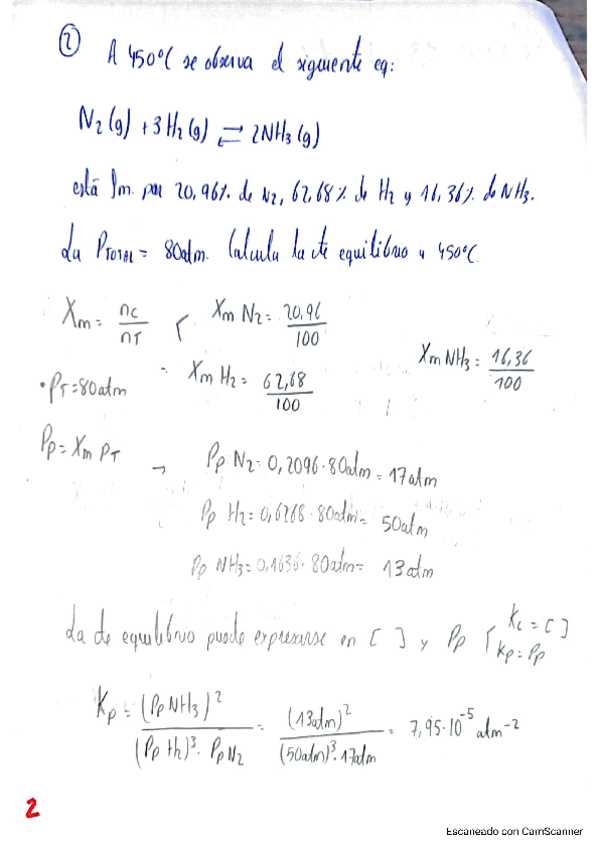 ② A 450ºC se observa el siguiente eq:
N2(g) + 3H2(g) ⇄ 2NH3(g)
está fm. por 20,96% de N2, 62,68% de H2 y 16,36% de NH3.
La PTOTAL = 80atm. Calcula la cte equilibrio a 450ºC.
Xm = nc/nT { Xm N2 = 20,96/100
Xm H2 = 62,68/100 Xm NH3 = 16,36/100
• PT = 80atm
Pp = Xm PT → Pp N2 = 0,2096 · 80atm = 17atm
Pp H2 = 0,6268 · 80atm = 50atm
Pp NH3 = 0,1636 · 80atm = 13atm
La de equilibrio puede expresarse en [ ] y Pp { Kc = [ ]
Kp = Pp
Kp = (Pp NH3)²/(Pp H2)³ · Pp N2 = (13atm)²/(50atm)³ · 17atm = 7,95·10⁻⁵ atm⁻²
2
Escaneado con CamScanner